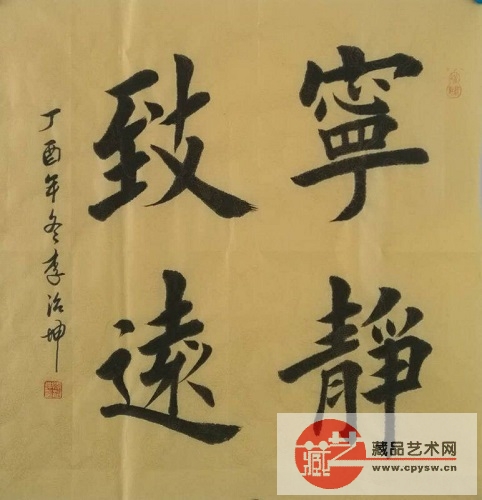 寧靜
致遠
丁酉年冬李治坤
藏艺
藏品艺术网
www.cpysw.cn